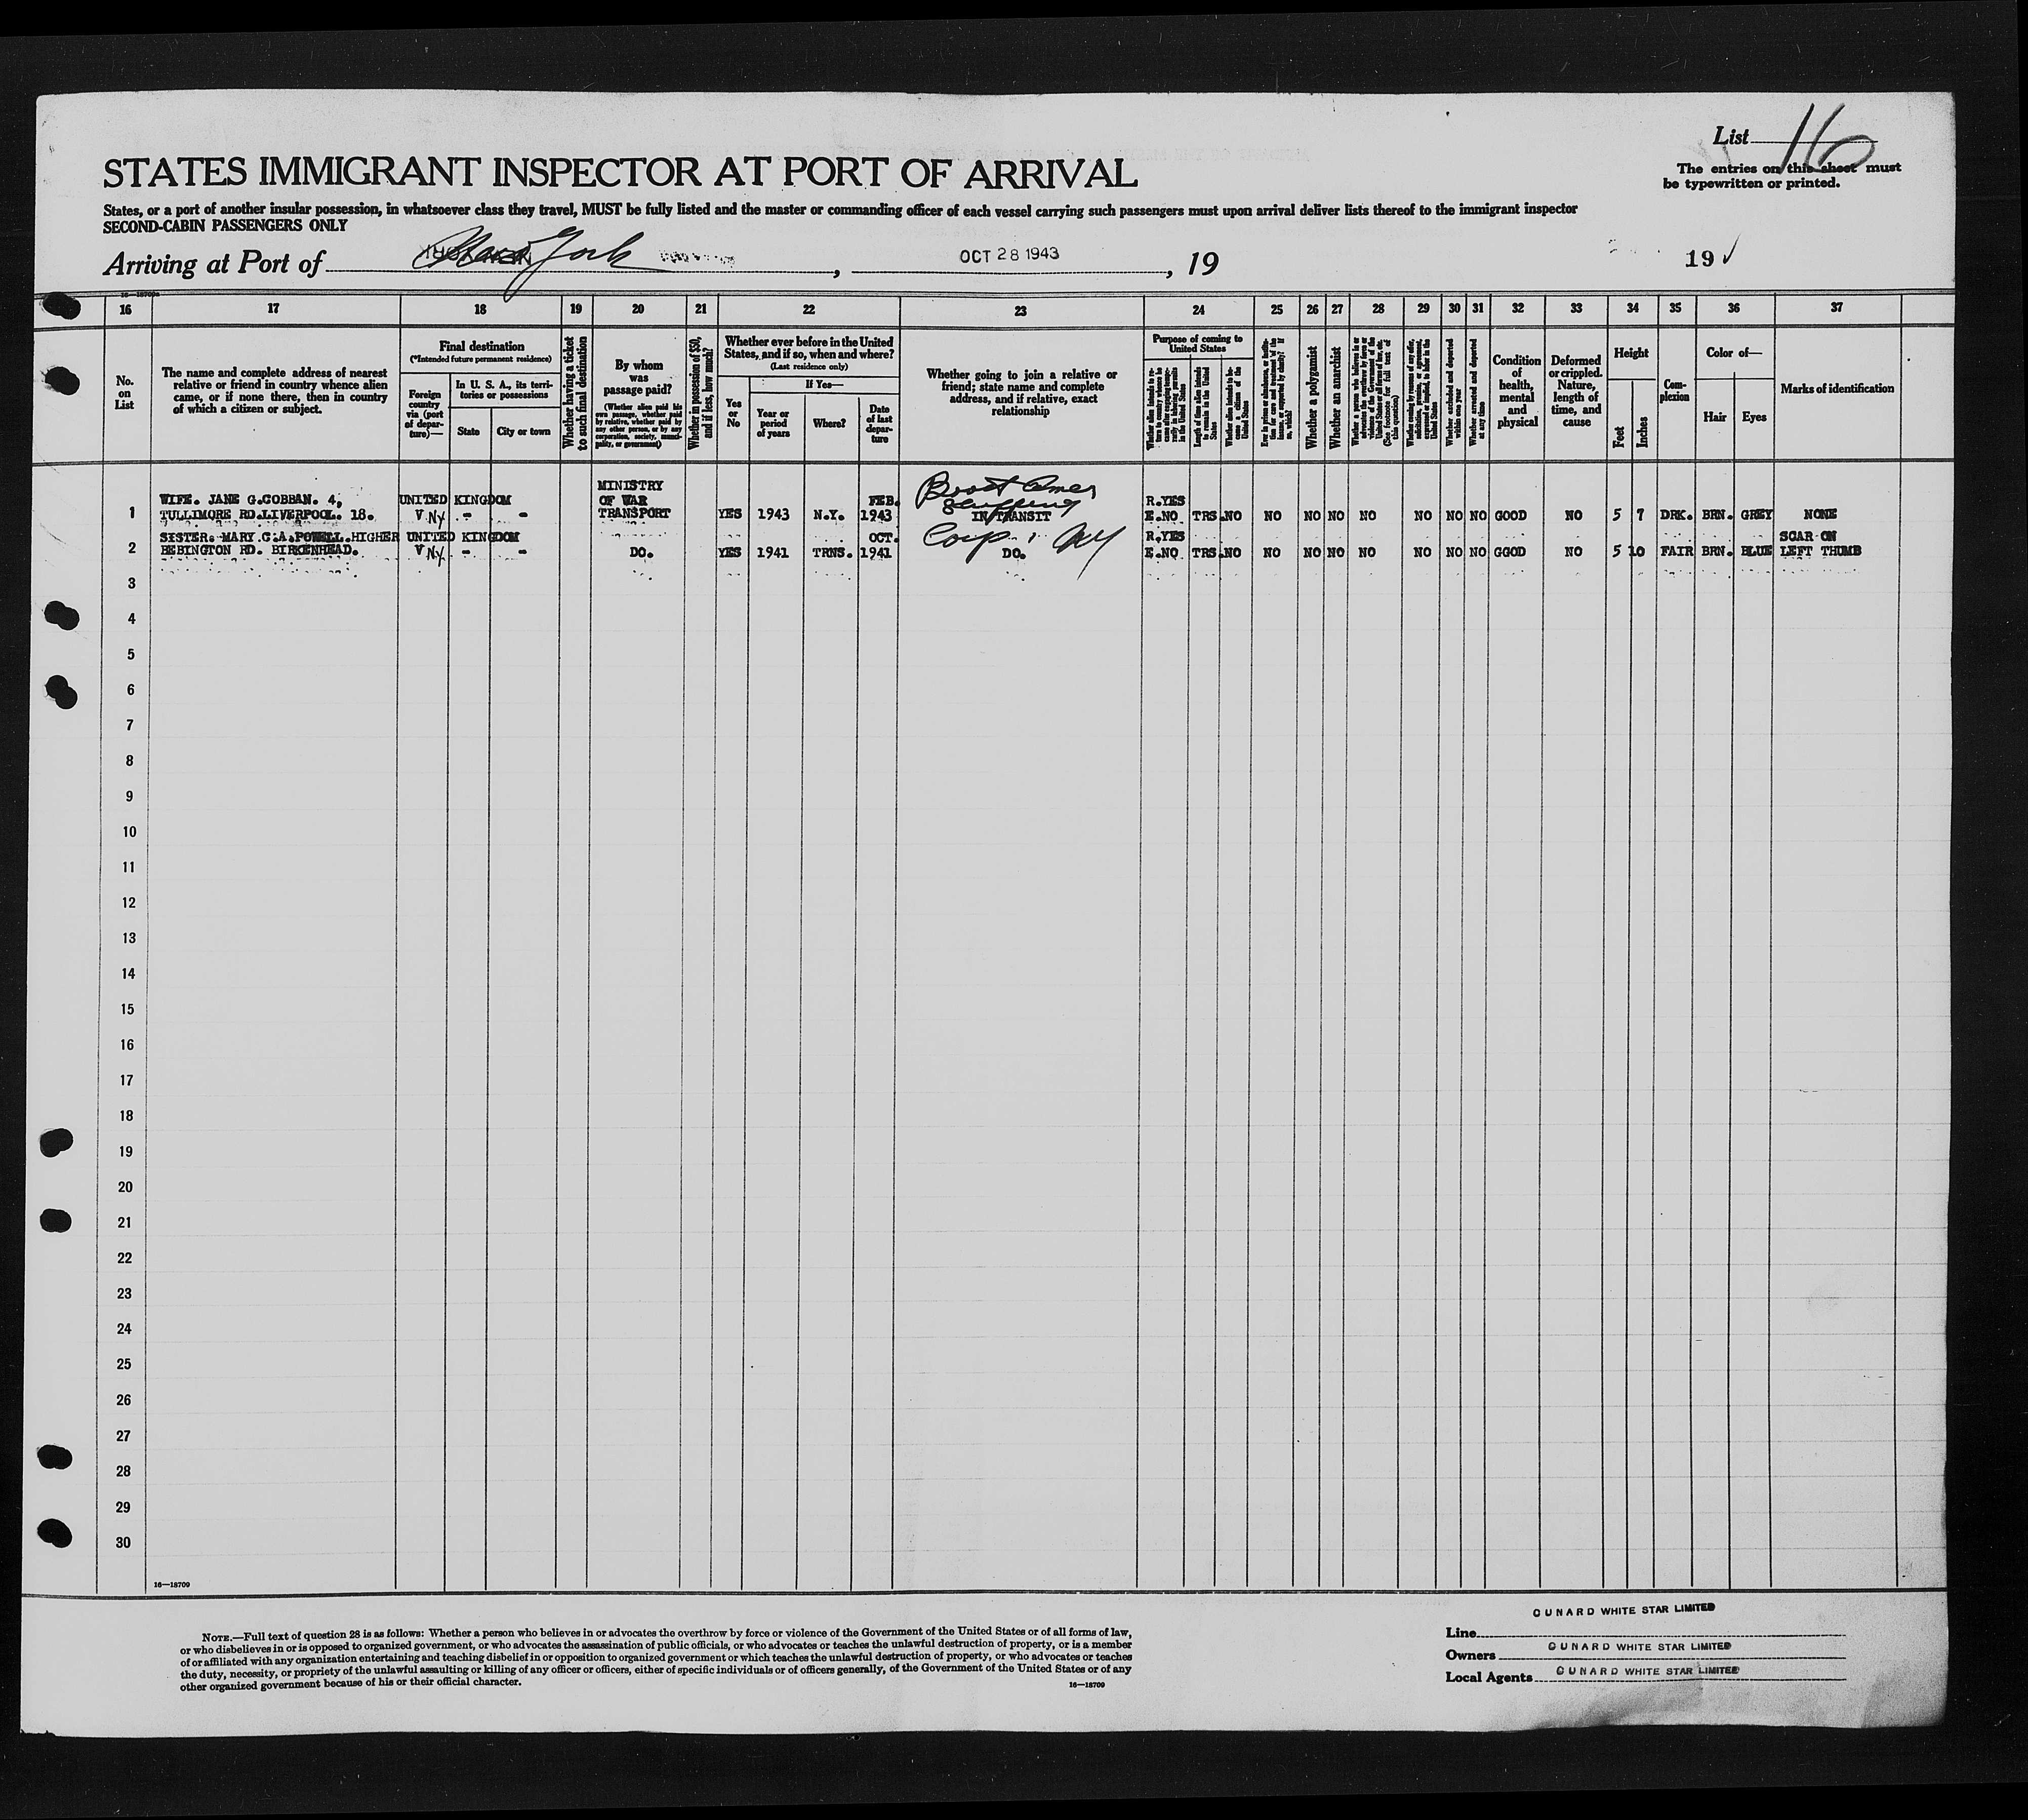 List 16
STATES IMMIGRANT INSPECTOR AT PORT OF ARRIVAL
The entries on this sheet must
be typewritten or printed.
States, or a port of another insular possession, in whatsoever class they travel, MUST be fully listed and the master or commanding officer of each vessel carrying such passengers must upon arrival deliver lists thereof to the immigrant inspector
SECOND-CABIN PASSENGERS ONLY
Arriving at Port of New York, OCT 28 1943, 19
19
16 17 18 19 20 21 22 23 24 25 26 27 28 29 30 31 32 33 34 35 36 37
No. on List
The name and complete address of nearest
relative or friend in country whence alien
came, or if none there, then in country
of which a citizen or subject.
Final destination
(*Intended future permanent residence)
Foreign country via (port of departure)—
In U. S. A., its territories or possessions
State
City or town
Whether having a ticket to such final destination
By whom was passage paid?
(Whether alien paid his own passage, whether paid by relative, whether paid by any other person, or by any corporation, society, municipality, or government)
Whether in possession of $50, and if less, how much?
Whether ever before in the United
States, and if so, when and where?
(Last residence only)
Yes or No
If Yes—
Year or period of years
Where?
Date of last departure
Whether going to join a relative or
friend; state name and complete
address, and if relative, exact
relationship
Purpose of coming to United States
Length of time alien intends to remain in the United States
Whether alien intends to become a citizen of the United States
Whether a polygamist
Whether an anarchist
Whether excluded and deported within one year
Whether arrested and deported at any time
Condition of health, mental and physical
Deformed or crippled. Nature, length of time, and cause
Height
Feet
Inches
Complexion
Color of—
Hair
Eyes
Marks of identification
1 WIFE. JANE G.COBBAN. 4,
TULLIMORE RD.LIVERPOOL. 18.
UNITED KINGDOM
V NY - -
MINISTRY
OF WAR
TRANSPORT
YES 1943 N.Y. FEB. 1943
Shipping
IN TRANSIT
R.YES
E.NO TRS. NO NO NO NO NO NO NO NO GOOD NO 5 7 DRK. BRN. GREY NONE
2 SISTER. MARY C.A.POWELL.HIGHER
BEBINGTON RD. BIRKENHEAD.
UNITED KINGDOM
V NY - -
DO.
YES 1941 TRNS. OCT. 1941
Corp. NY
DO.
R.YES
E.NO TRS. NO NO NO NO NO NO NO NO GGOD NO 5 10 FAIR BRN. BLUE SCAR ON
LEFT THUMB
3
4
5
6
7
8
9
10
11
12
13
14
15
16
17
18
19
20
21
22
23
24
25
26
27
28
29
30
16—18709
NOTE.—Full text of question 28 is as follows: Whether a person who believes in or advocates the overthrow by force or violence of the Government of the United States or of all forms of law,
or who disbelieves in or is opposed to organized government, or who advocates the assassination of public officials, or who advocates or teaches the unlawful destruction of property, or is a member
of or affiliated with any organization entertaining and teaching disbelief in or opposition to organized government or which teaches the unlawful destruction of property, or who advocates or teaches
the duty, necessity, or propriety of the unlawful assaulting or killing of any officer or officers, either of specific individuals or of officers generally, of the Government of the United States or of any
other organized government because of his or their official character.
16—18709
Line CUNARD WHITE STAR LIMITED
Owners CUNARD WHITE STAR LIMITED
Local Agents CUNARD WHITE STAR LIMITED